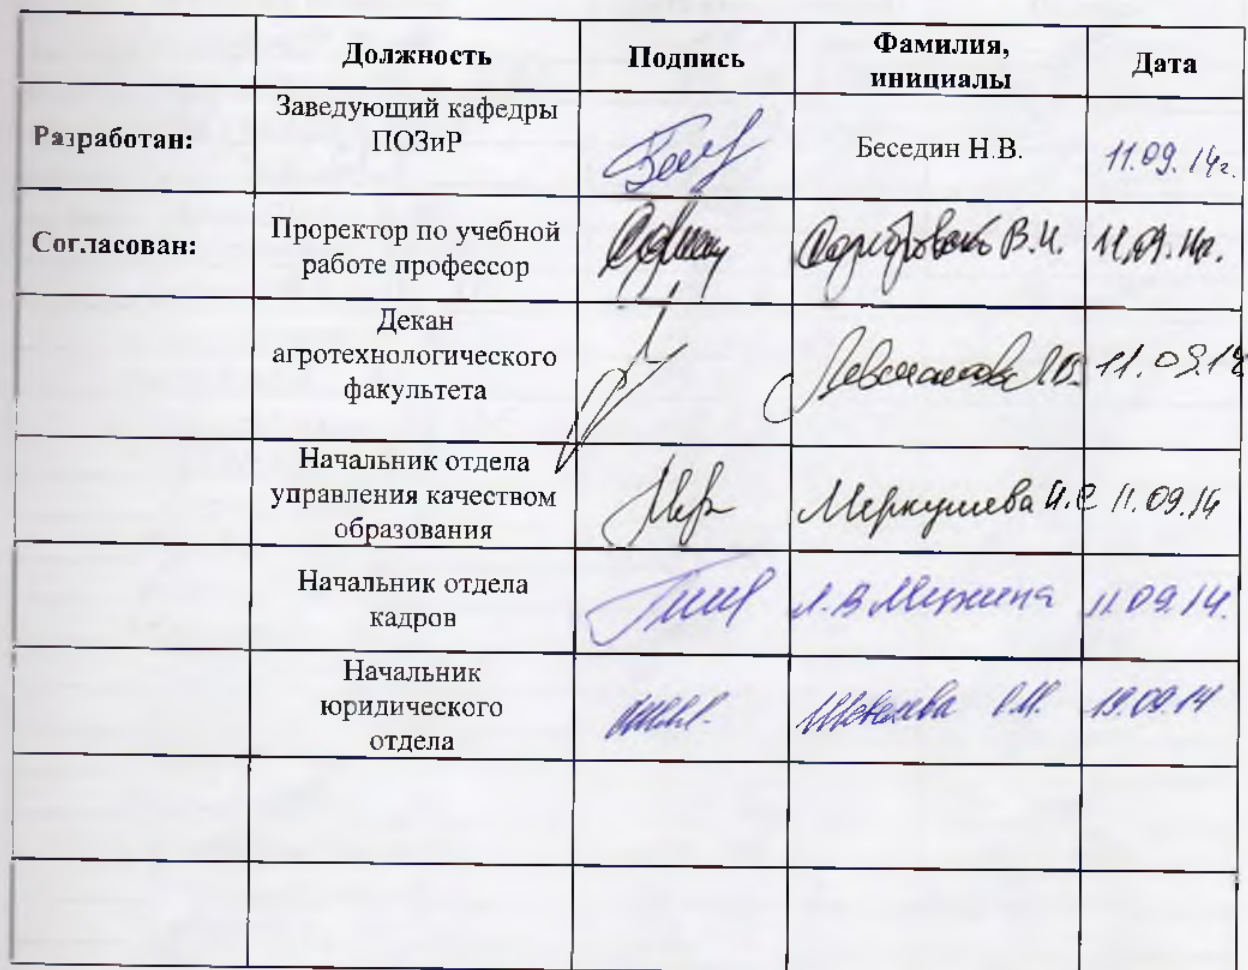 Должность
Подпись
Фамилия,
инициалы
Дата
Разработан:
Заведующий кафедры
ПОЗиР
Беседин Н.В.
11.09.14г.
Согласован:
Проректор по учебной
работе профессор
В.И.
11.09.14г.
Декан
агротехнологического
факультета
11.09.14
Начальник отдела
управления качеством
образования
Меркушева И.С
11.09.14
Начальник отдела
кадров
Л.В
11.09.14.
Начальник
юридического
отдела
19.09.14